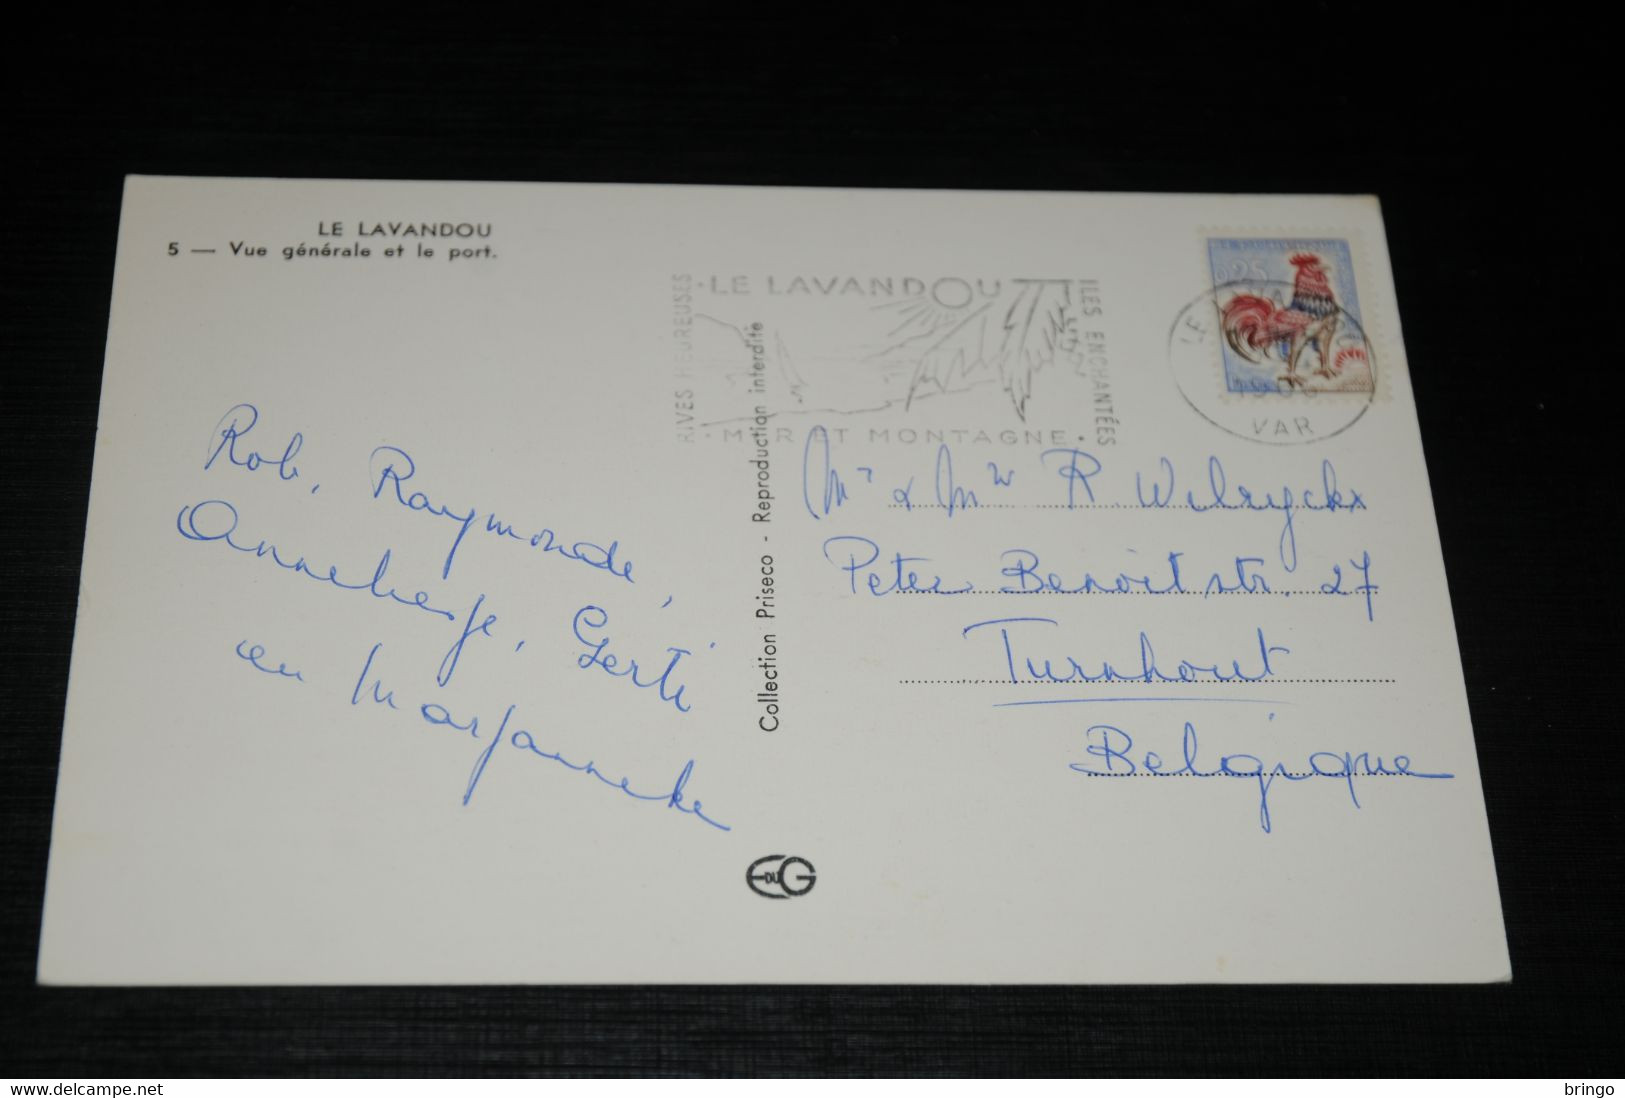 LE LAVANDOU
5 — Vue générale et le port.
RIVES HEUREUSES
· LE LAVANDOU
ILES ENCHANTÉES
· MER ET MONTAGNE ·
0,25
VAR
Rob, Raymonde,
Anneberje, Gerti
en Marjanneke
Collection Priseco - Reproduction interdite
Mr & Mw R. Wilryckx
Peter Benoitstr. 27
Turnhout
Belgique
E DU G
www.delcampe.net
bringo